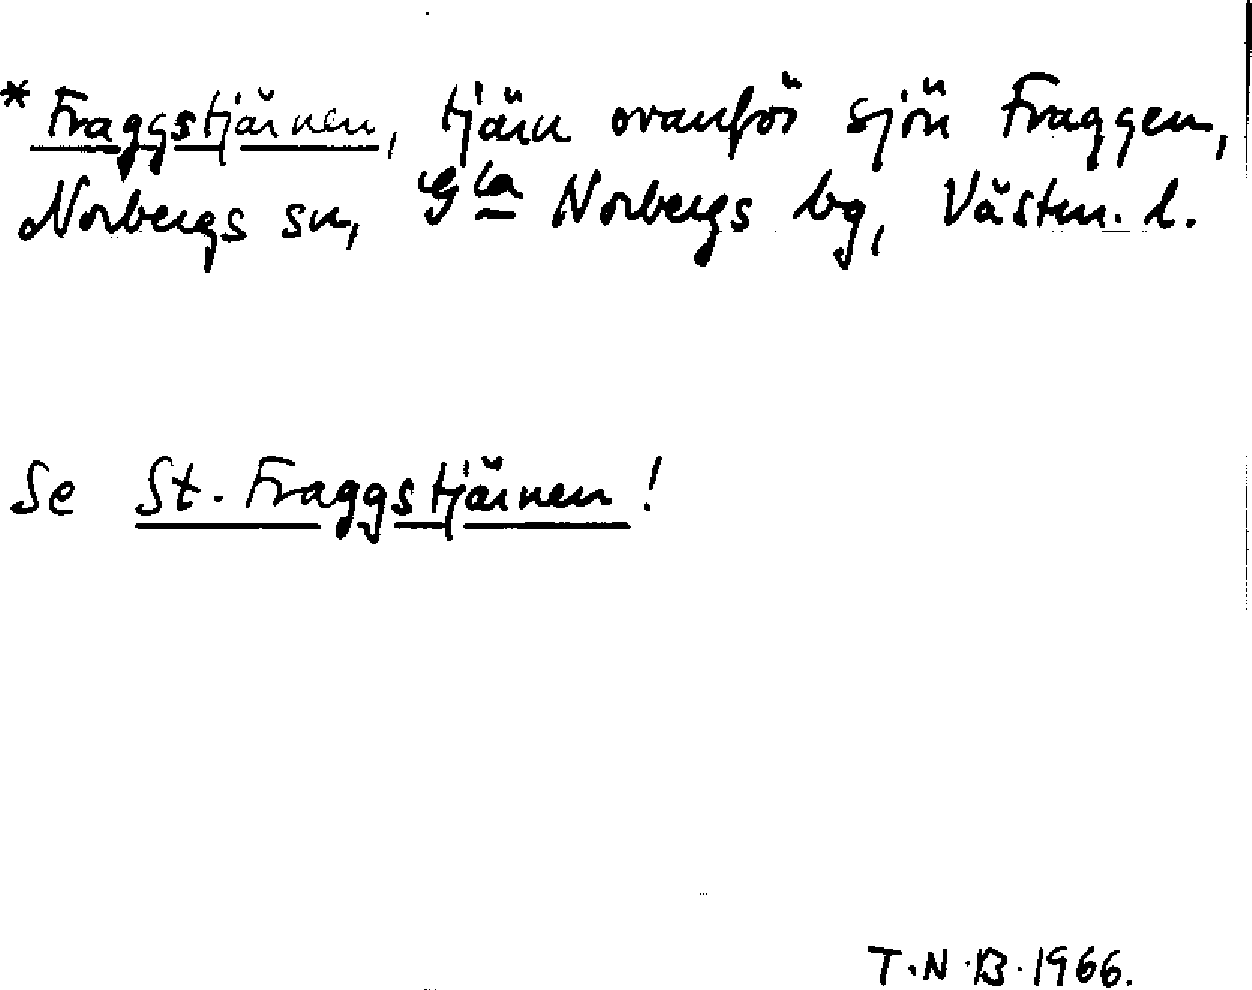 * Fraggstjärnen, tjärn ovanför sjön Fraggen,
Norbergs sn, Gla Norbergs bg, Västm. l.
Se St. Fraggstjärnen!
T.N.B. 1966.